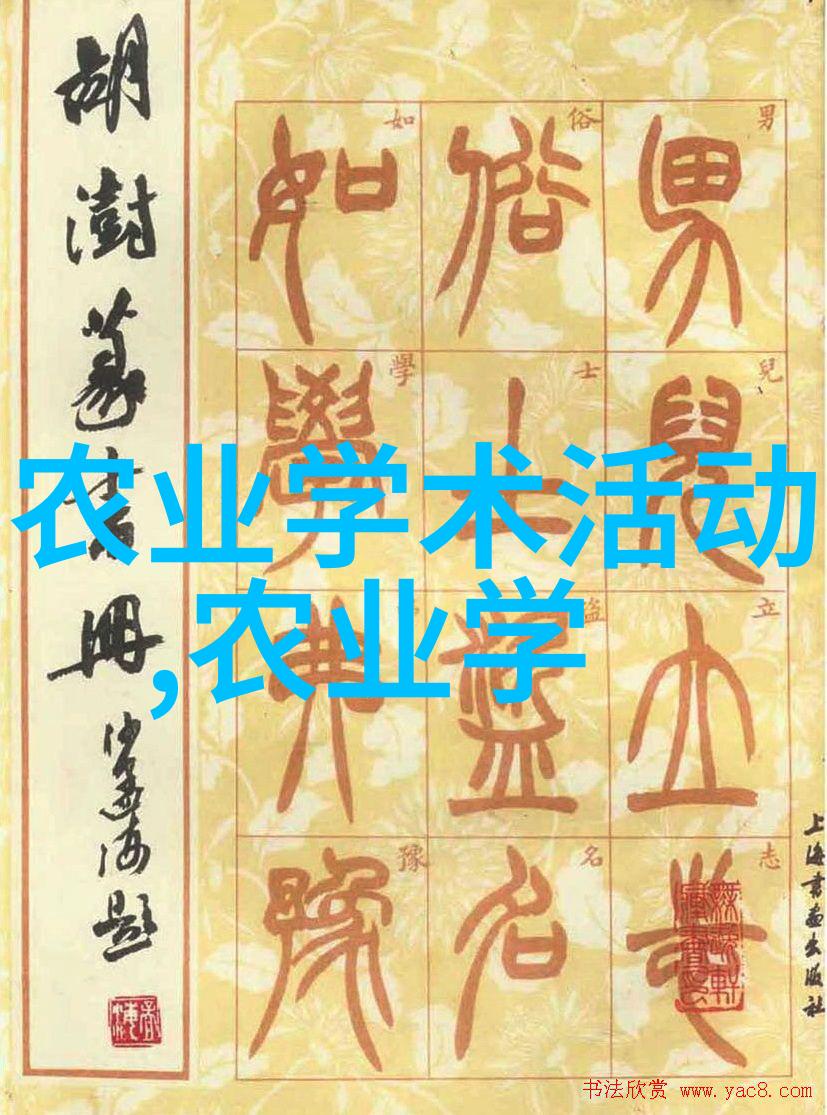 胡澍篆书册
沙孟海题
男
俗
如
兒
士
學
立
盜
典
志
名
豫
上海书画出版社
农业学术活动
,农业学
书法欣赏 www.yac8.com